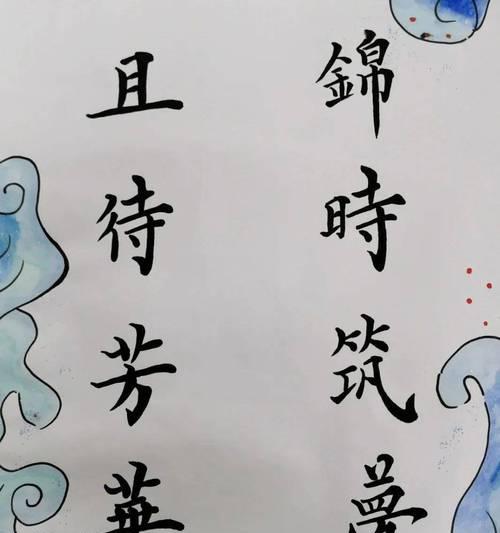 錦時筑夢
且待芳華